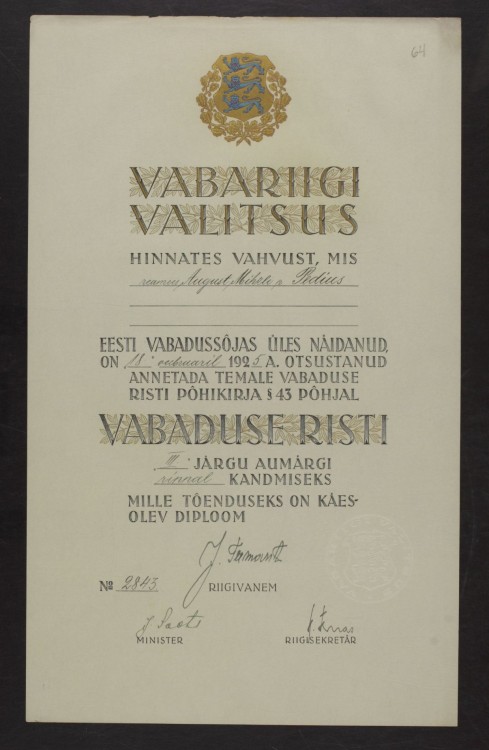 64
VABARIIGI
VALITSUS
HINNATES VAHVUST, MIS
reamees August, Mihkli p. Pedius
EESTI VABADUSSÕJAS ÜLES NÄIDANUD,
ON 18. veebruaril 1925 A. OTSUSTANUD
ANNETADA TEMALE VABADUSE
RISTI PÕHIKIRJA § 43 PÕHJAL
VABADUSE RISTI
III JÄRGU AUMÄRGI
rinnal KANDMISEKS
MILLE TÕENDUSEKS ON KÄES-
OLEV DIPLOOM
Nº 2843. RIIGIVANEM
MINISTER RIIGISEKRETÄR